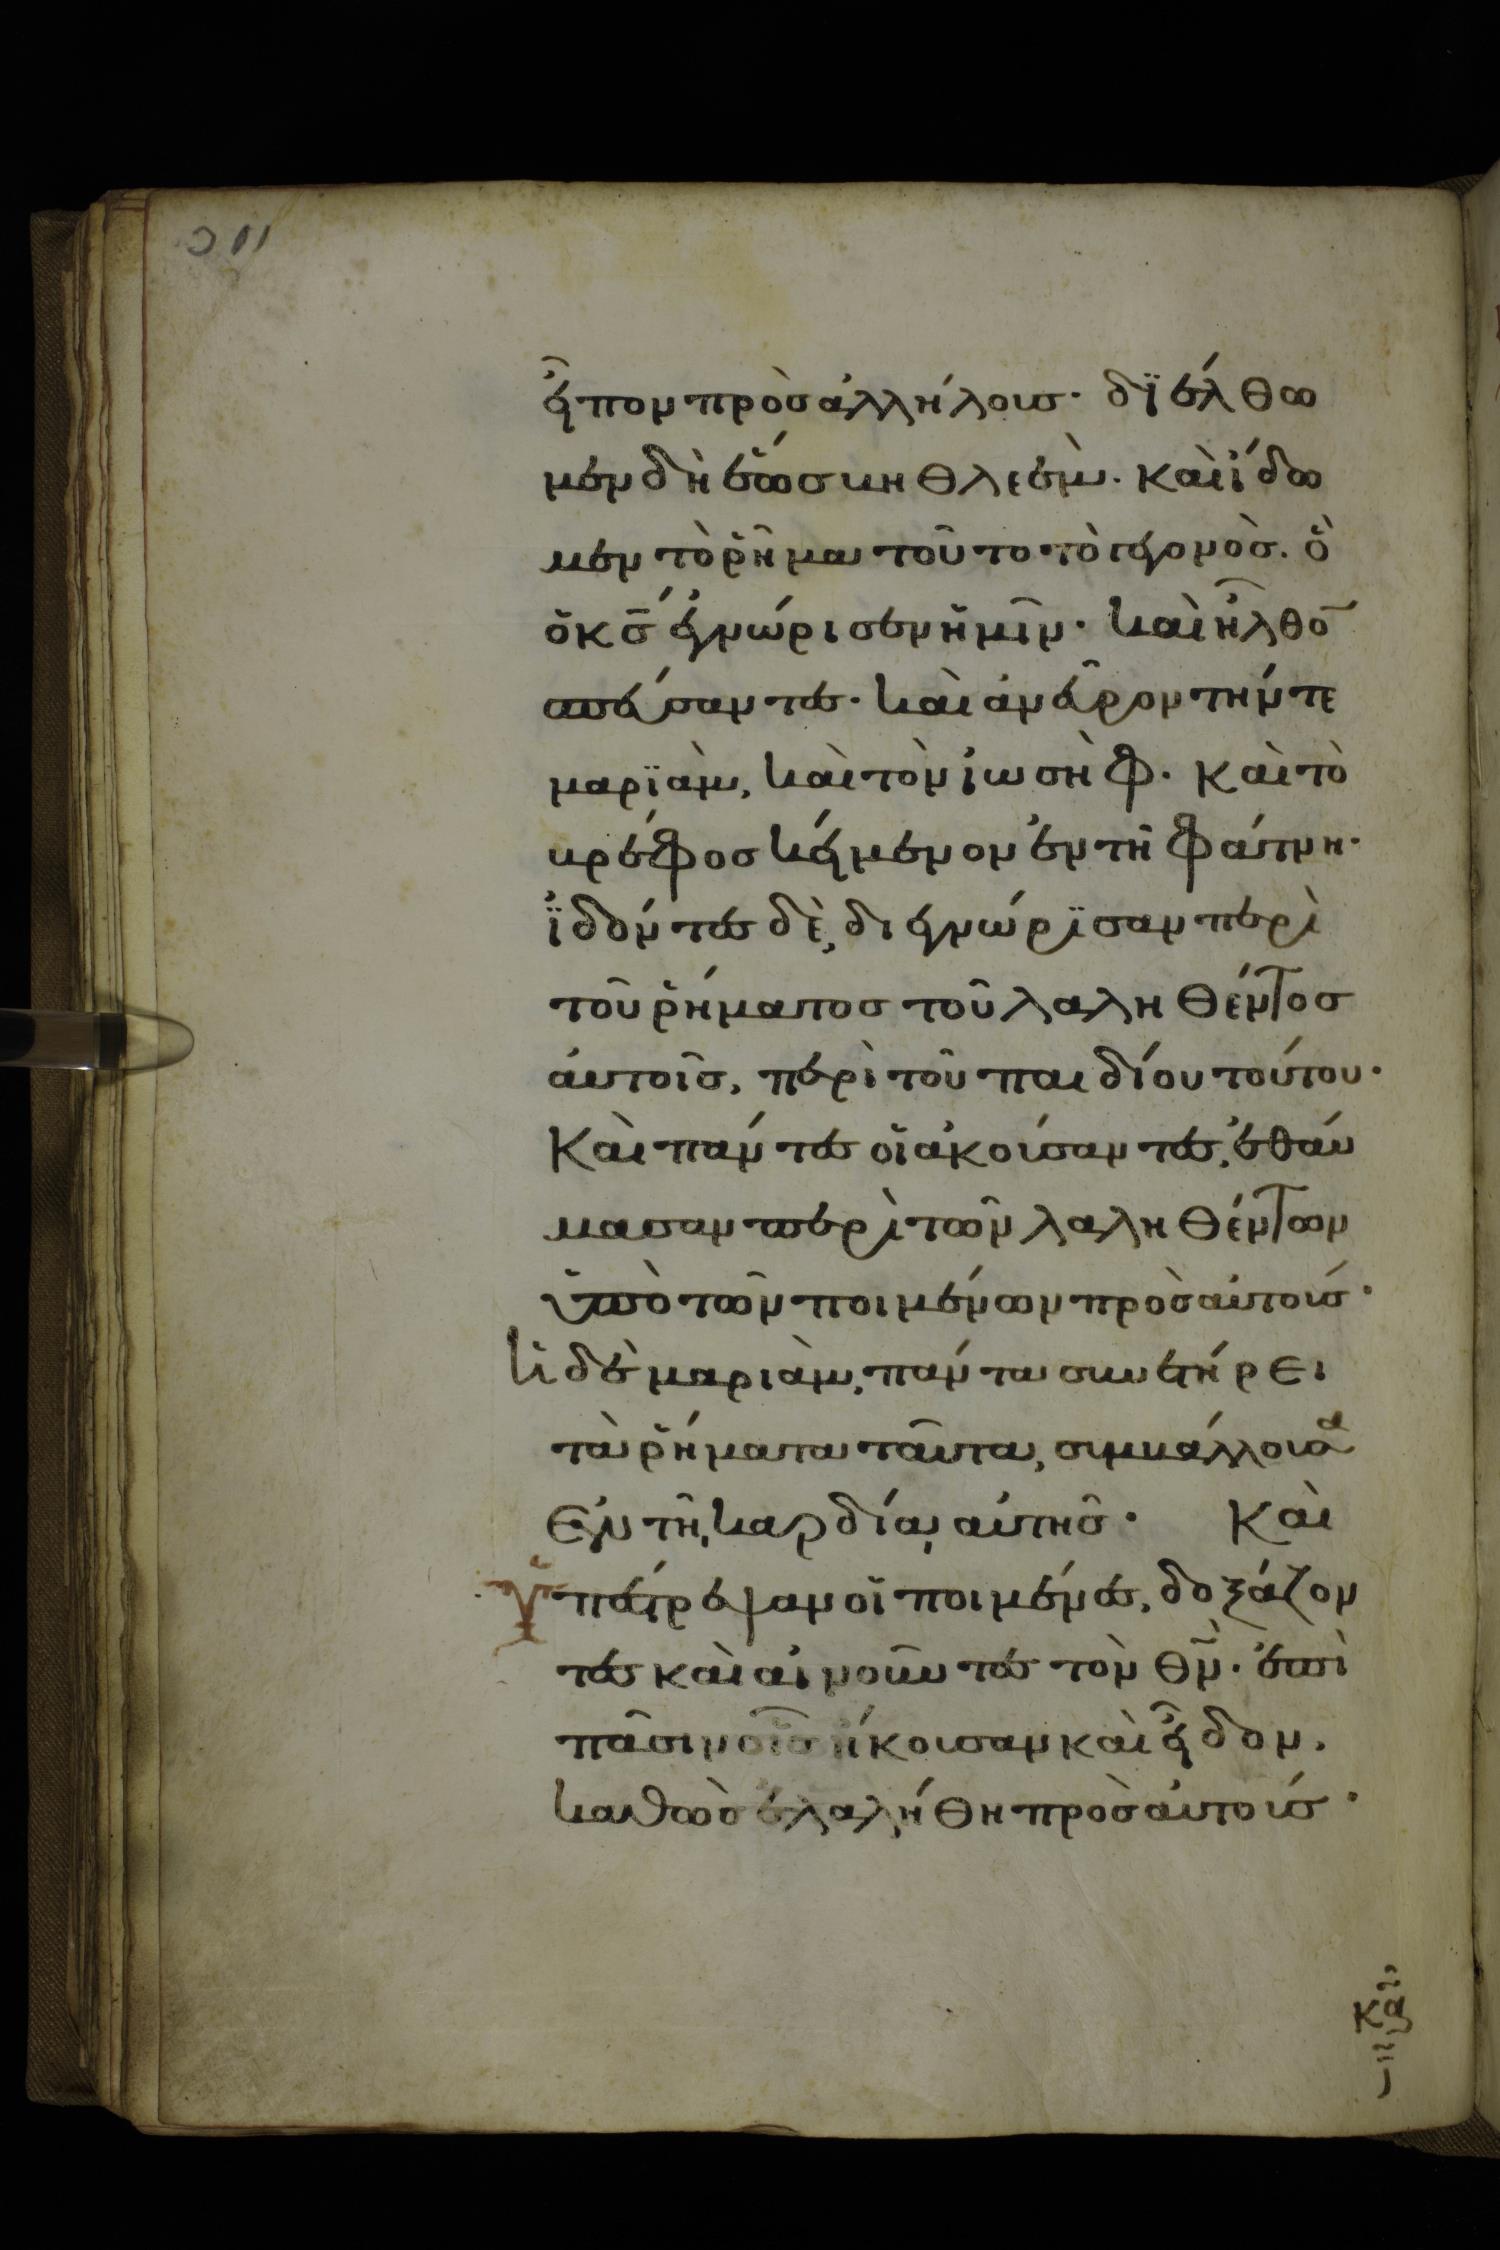 εἶπον πρὸς ἀλλήλους· διέλθω
μεν δὴ ἕως βηθλεὲμ· καὶ ἴδω
μεν τὸ ῥῆμα τοῦτο τὸ γεγονὸς· ὃ
ὁ κ̅ς̅ ἐγνώρισεν ἡμῖν· καὶ ἦλθο̅
σπεύσαντες· καὶ ἀνεῦρον τήν τε
μαρϊὰμ, καὶ τὸν ἰωσὴφ· καὶ τὸ
βρέφος κείμενον ἐν τῆ φάτνη·
ϊδόντες δὲ, διεγνώρϊσαν περὶ
τοῦ ῥήματος τοῦ λαληθέντος
αὐτοῖς, περὶ τοῦ παιδίου τούτου·
Καὶ πάντες οἱ ἀκούσαντες, ἐθαύ
μασαν περὶ τῶν λαληθέντων
ὑπὸ τῶν ποιμένων πρὸς αὐτούς·
ἡ δὲ μαριὰμ, πάντα συνετήρει
τὰ ῥήματα ταῦτα, συμβάλλουσα
ἐν τῆ, καρδία, αὐτῆς· Καὶ
Ὑπέτρεψαν οἱ ποιμένες, δοξάζον
τες καὶ αἰνοῦντες τὸν θ̅ν̅· ἐπὶ
πᾶσιν οἷς ἤκουσαν καὶ εἶδον,
καθὼς ἐλαλήθη πρὸς αὐτούς·